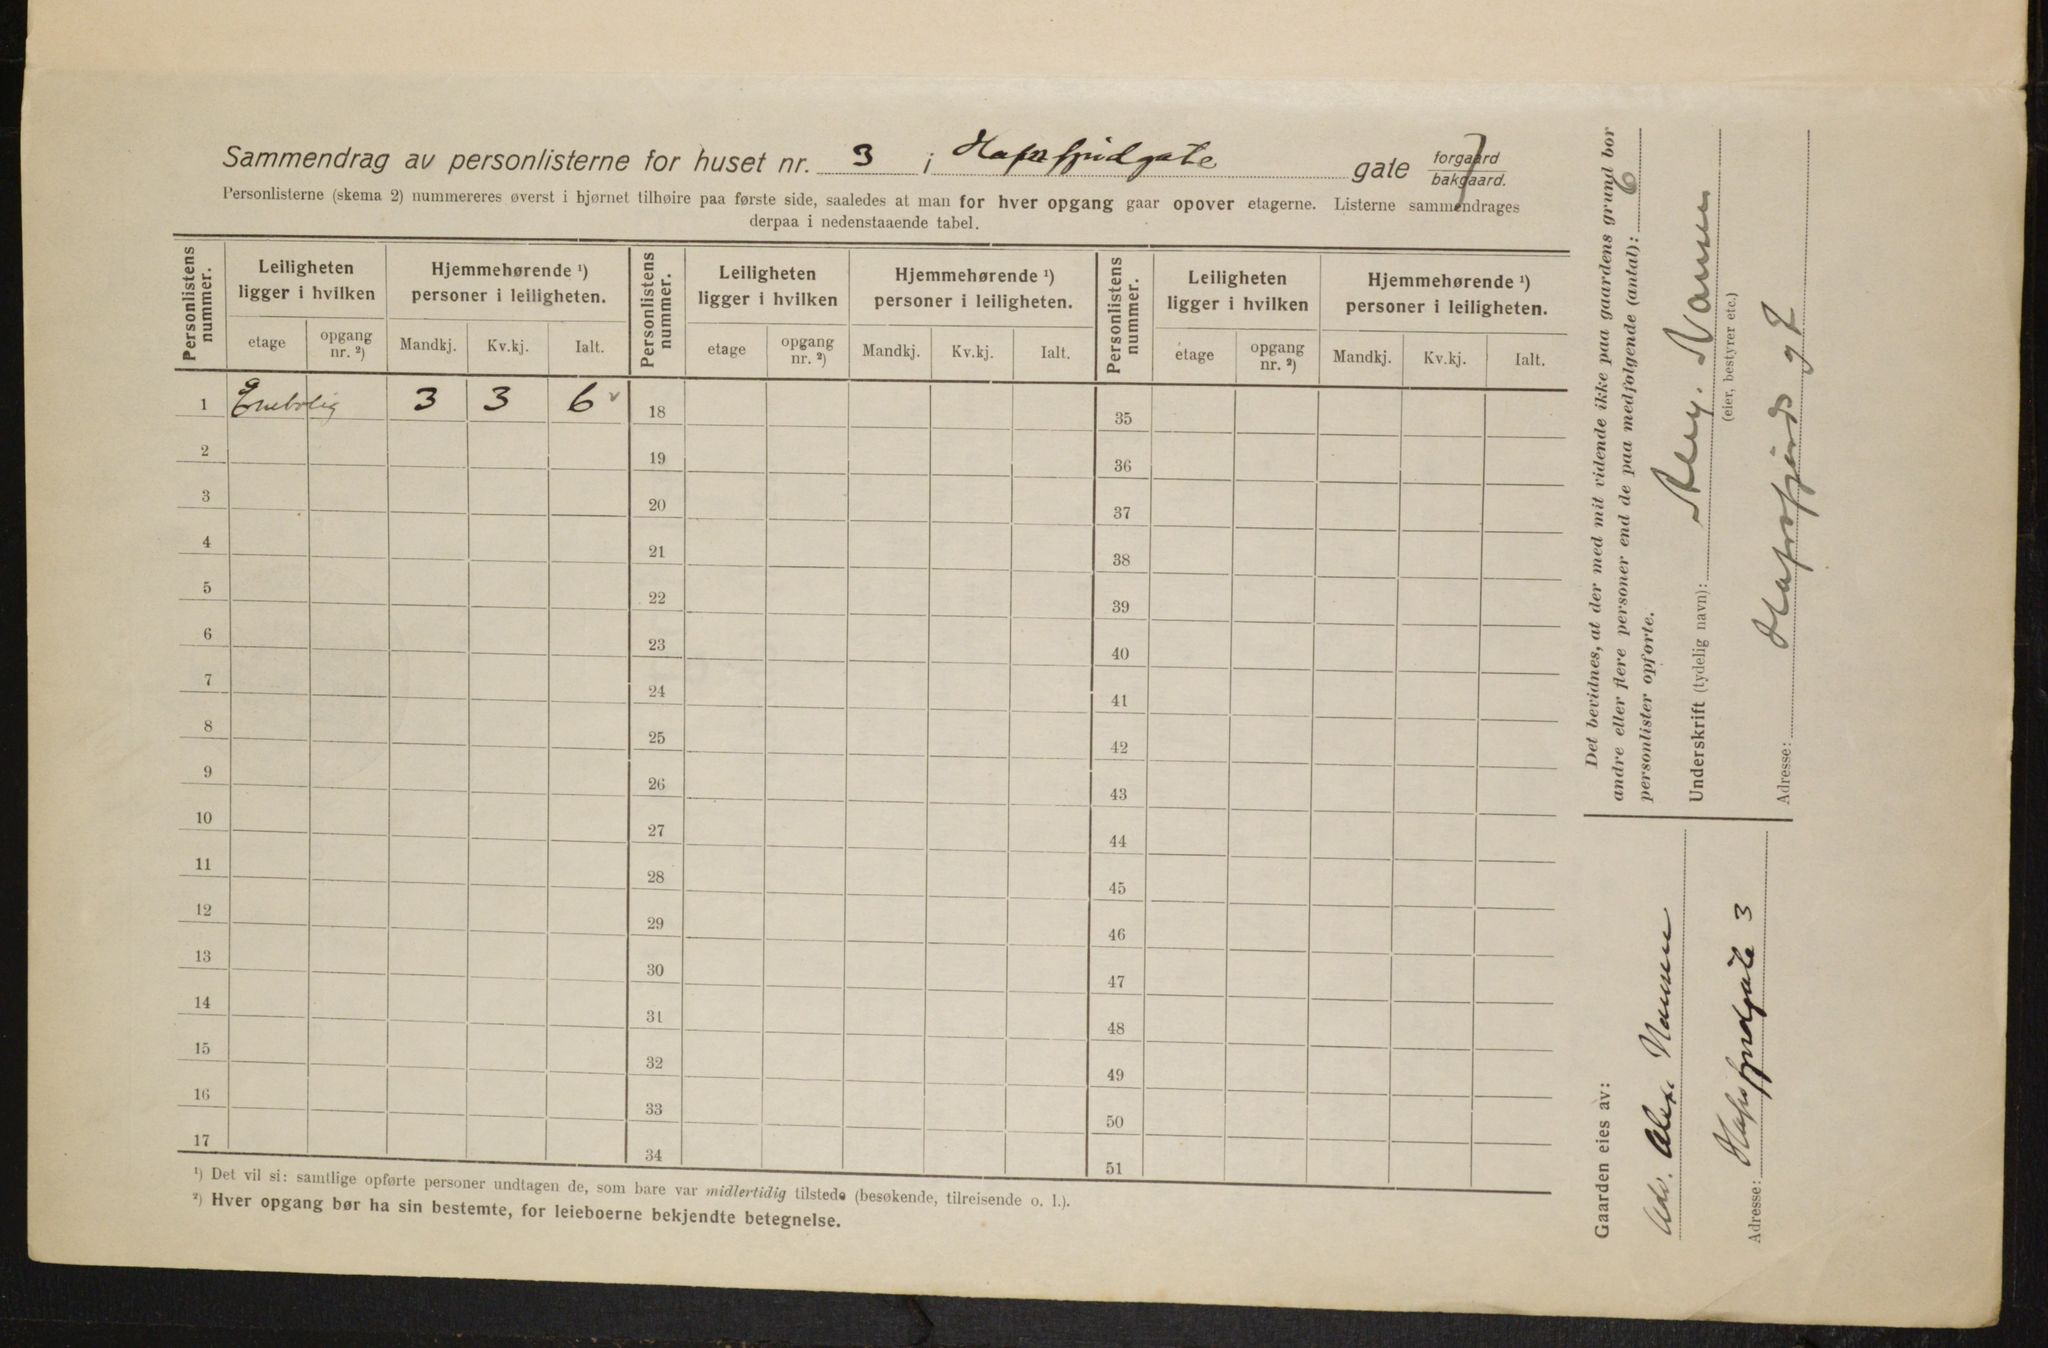 Sammendrag av personlisterne for huset nr. 3 i Hafrsfjordgate gate forgaard bakgaard.
Personlisterne (skema 2) nummereres øverst i hjørnet tilhøire paa første side, saaledes at man for hver opgang gaar opover etagerne. Listerne sammendrages
derpaa i nedenstaaende tabel.
Personlistens nummer. Leiligheten ligger i hvilken Hjemmehørende ¹) personer i leiligheten. Personlistens nummer. Leiligheten ligger i hvilken Hjemmehørende ¹) personer i leiligheten. Personlistens nummer. Leiligheten ligger i hvilken Hjemmehørende ¹) personer i leiligheten.
etage opgang nr. ²) Mandkj. Kv.kj. Ialt. etage opgang nr. ²) Mandkj. Kv.kj. Ialt. etage opgang nr. ²) Mandkj. Kv.kj. Ialt.
1 Enebolig 3 3 6 v 18 35
2 19 36
3 20 37
4 21 38
5 22 39
6 23 40
7 24 41
8 25 42
9 26 43
10 27 44
11 28 45
12 29 46
13 30 47
14 31 48
15 32 49
16 33 50
17 34 51
¹) Det vil si: samtlige opførte personer undtagen de, som bare var midlertidig tilstede (besøkende, tilreisende o. l.).
²) Hver opgang bør ha sin bestemte, for leieboerne bekjendte betegnelse.
Det bevidnes, at der med mit vidende ikke paa gaardens grund bor
andre eller flere personer end de paa medfølgende (antal): 6
personlister opførte.
Underskrift (tydelig navn): Alex. Nansen
(eier, bestyrer etc.)
Adresse: Hafrsfjords g 7
Gaarden eies av:
Adv. Alex. Nansen
Adresse: Hafrsfjordgate 3